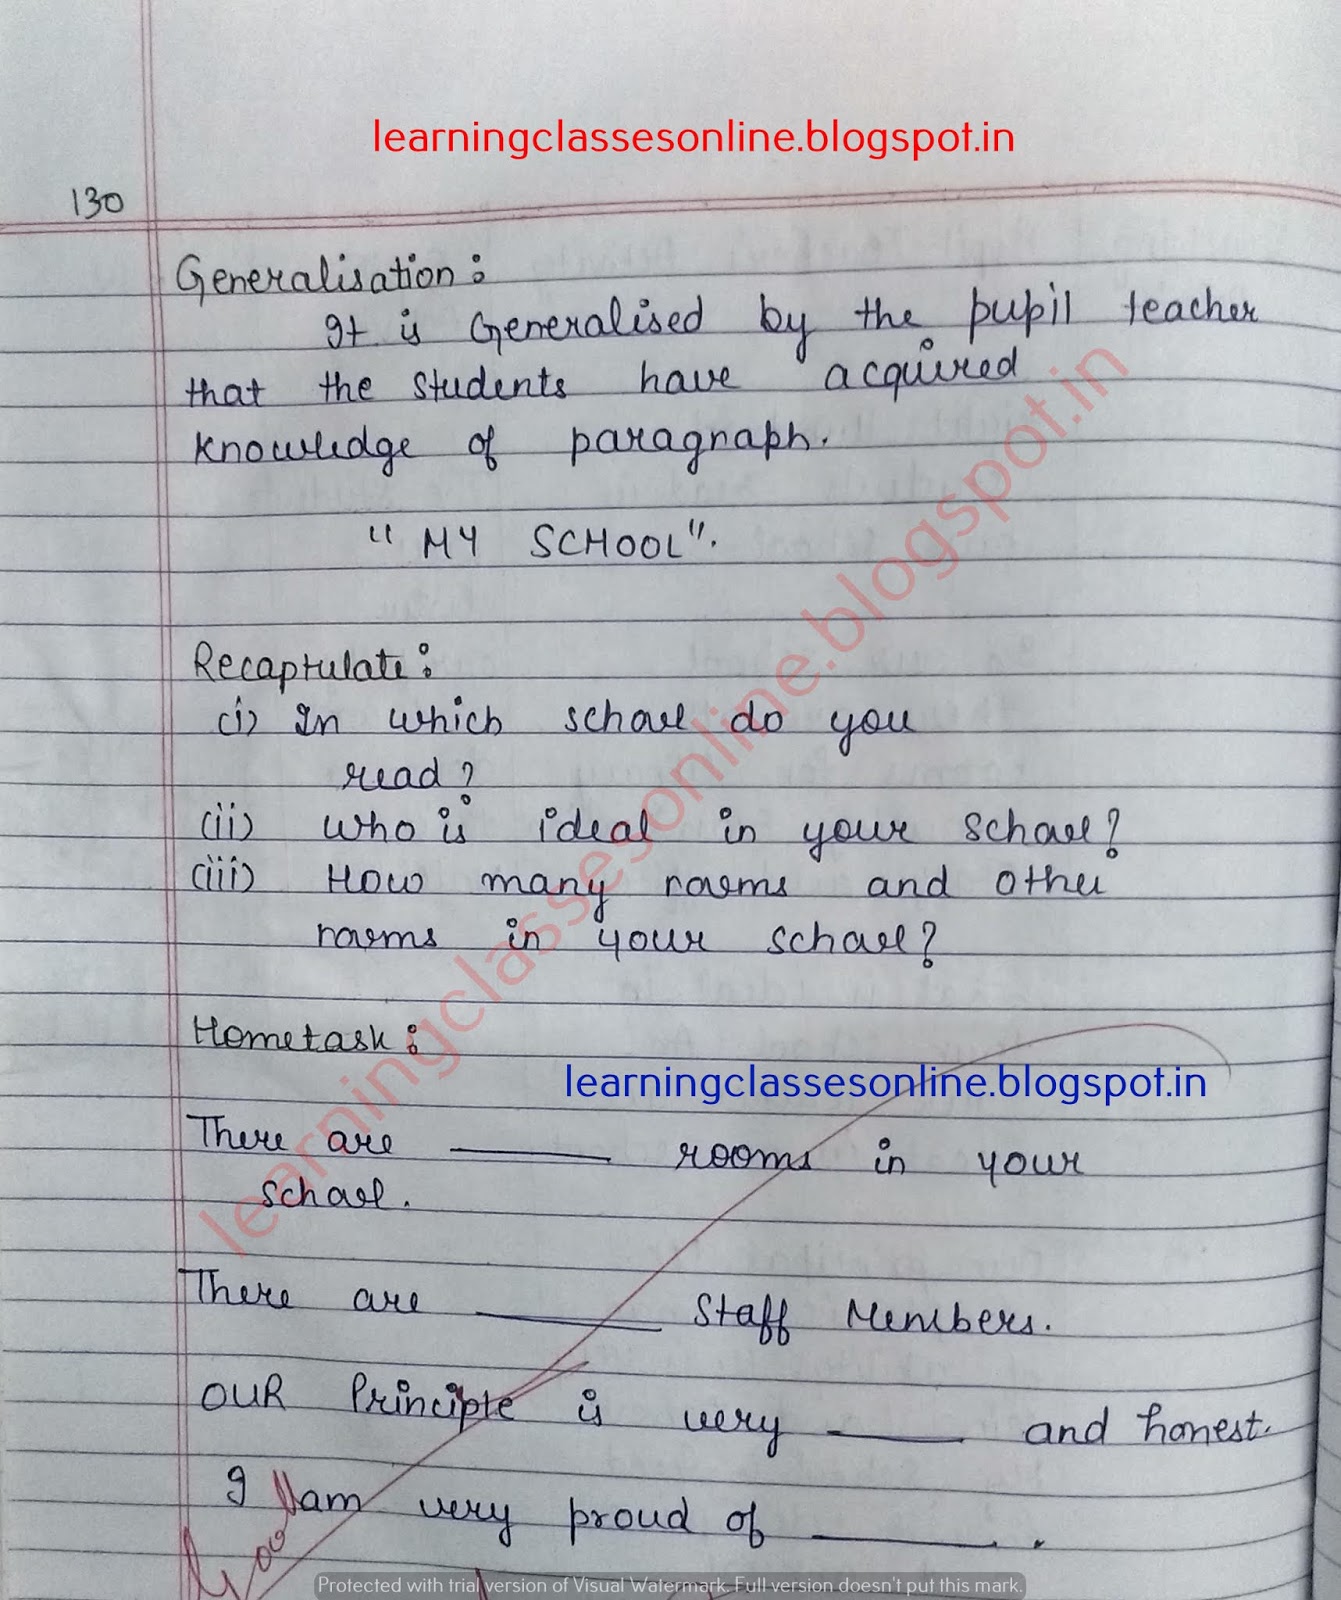 learningclassesonline.blogspot.in
130
Generalisation :
It is Generalised by the pupil teacher
that the students have acquired
knowledge of paragraph.
"MY SCHOOL".
Recaptulate :
(i) In which school do you
read?
(ii) Who is ideal in your school?
(iii) How many rooms and other
rooms in your school?
Hometask :
learningclassesonline.blogspot.in
There are ______ rooms in your
school.
There are ______ Staff Members.
OUR Principle is very ______ and honest.
I am very proud of ______.
Good
learningclassesonline.blogspot.in
Protected with trial version of Visual Watermark. Full version doesn't put this mark.